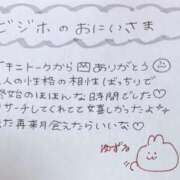 ビジホのおにいさま
キニトークから ありがとう♡
人の小性格の相性ばっちりで
終始のほほんな時間でした♡
リサーチしてくれてて女喜しかったよ
た再来月会えたらいいな♡
ゆずる